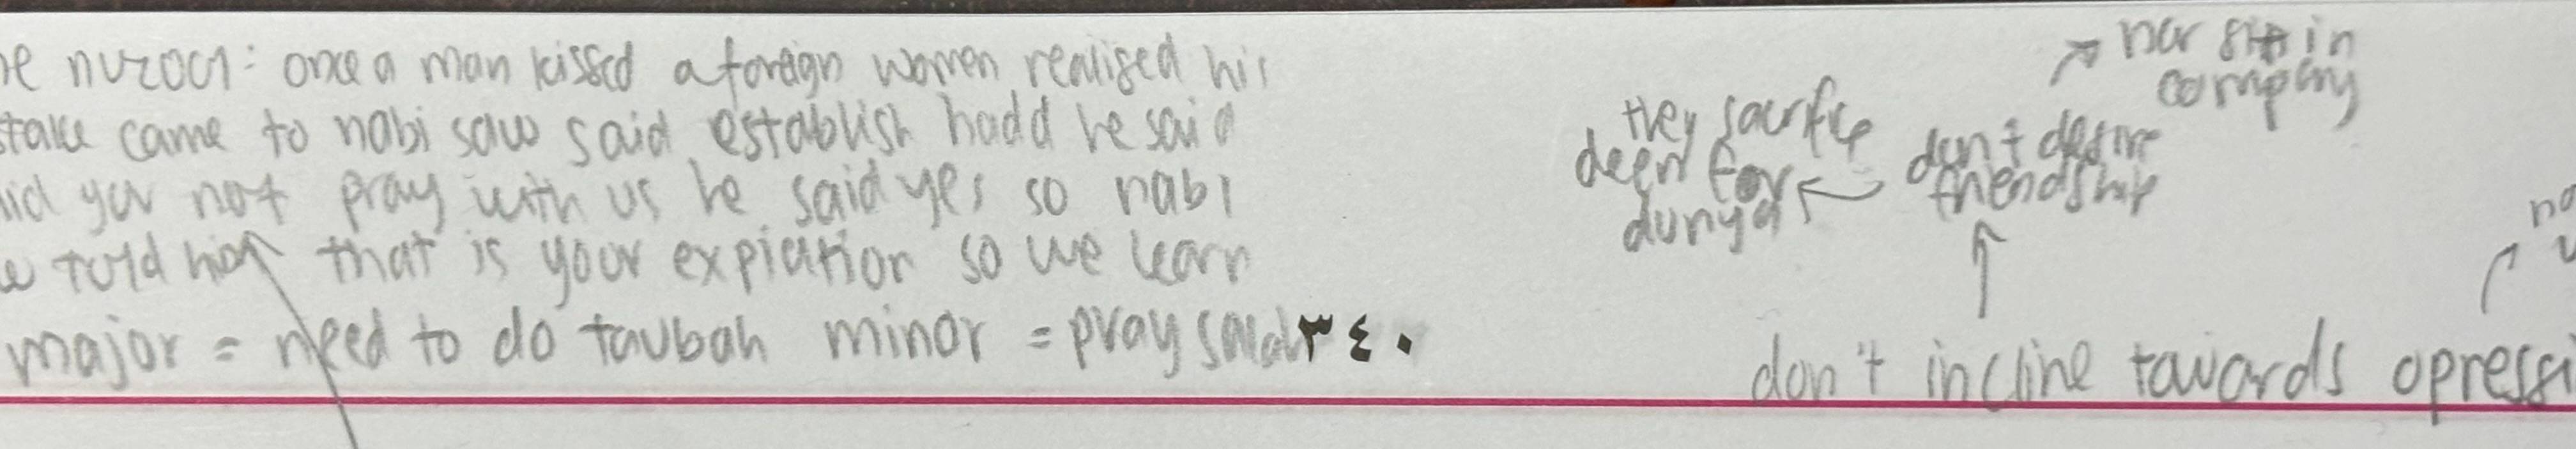 e nuzool: once a man kissed a foreign women realised his
stake came to nabi saw said establish hadd he said
id you not pray with us he said yes so nabi
w told him that is your expiation so we learn
major = need to do taubah minor = pray salah
٣٤٠
nor sit in
company
they sacrifice
deen for
dunya
don't desire
friendship
don't incline towards opressi